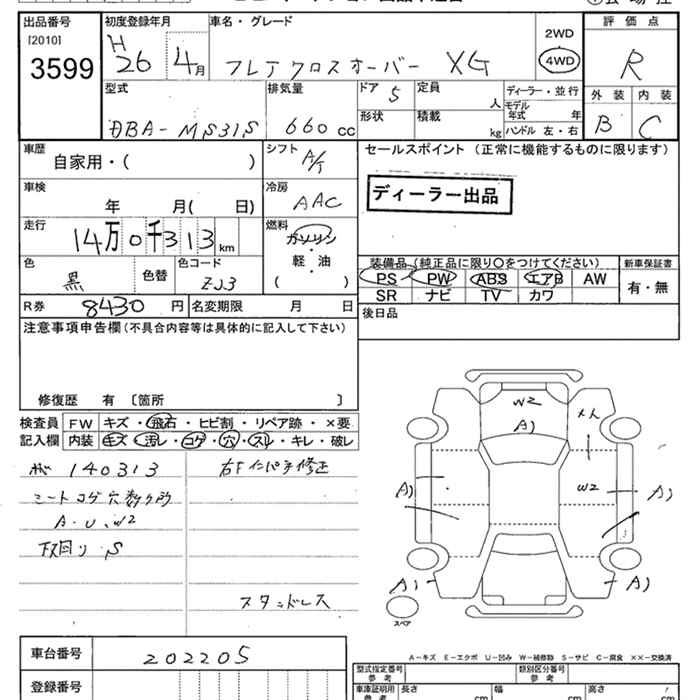 出品番号
[2010]
3599
初度登録年月
H
26 4月
車名・グレード
フレアクロスオーバー XG
2WD
4WD
評価点
R
外装 内装
B C
型式
DBA-MS31S
排気量
660 cc
ドア 5
形状
定員
人
積載
kg
ディーラー・並行
モデル
年式 年
ハンドル 左・右
車歴
自家用・( )
シフト
A/T
セールスポイント (正常に機能するものに限ります)
ディーラー出品
車検
年 月( 日)
冷房
AAC
走行
14万0千313km
燃料
ガソリン
・
軽・油
( )
色
黒
色替
色コード
ZJ3
装備品(純正品に限り○をつけてください)
PS PW ABS エアB AW
SR ナビ TV カワ
新車保証書
有・無
R券 8430円
名変期限 月 日
後日品
注意事項申告欄(不具合内容等は具体的に記入して下さい)
修復歴 有 〔箇所 〕
検査員
記入欄
FW キズ・飛石・ヒビ割・リペア跡・×要
内装 キズ・汚レ・コゲ・穴・スレ・キレ・破レ
140313
シートコゲ穴数ヶ所
A・U、W2
下回り S
右Fインパネ修正
スタッドレス
W2
A)
A)
W2
A)
A)
A)
スペア
A-キズ E-エクボ U-凹み W-補修跡 S-サビ C-腐食 ××-交換済
車台番号
202205
登録番号
型式指定番号
参考
類別区分番号
参考
車庫証明用
参考
長さ cm
幅 cm
高さ cm